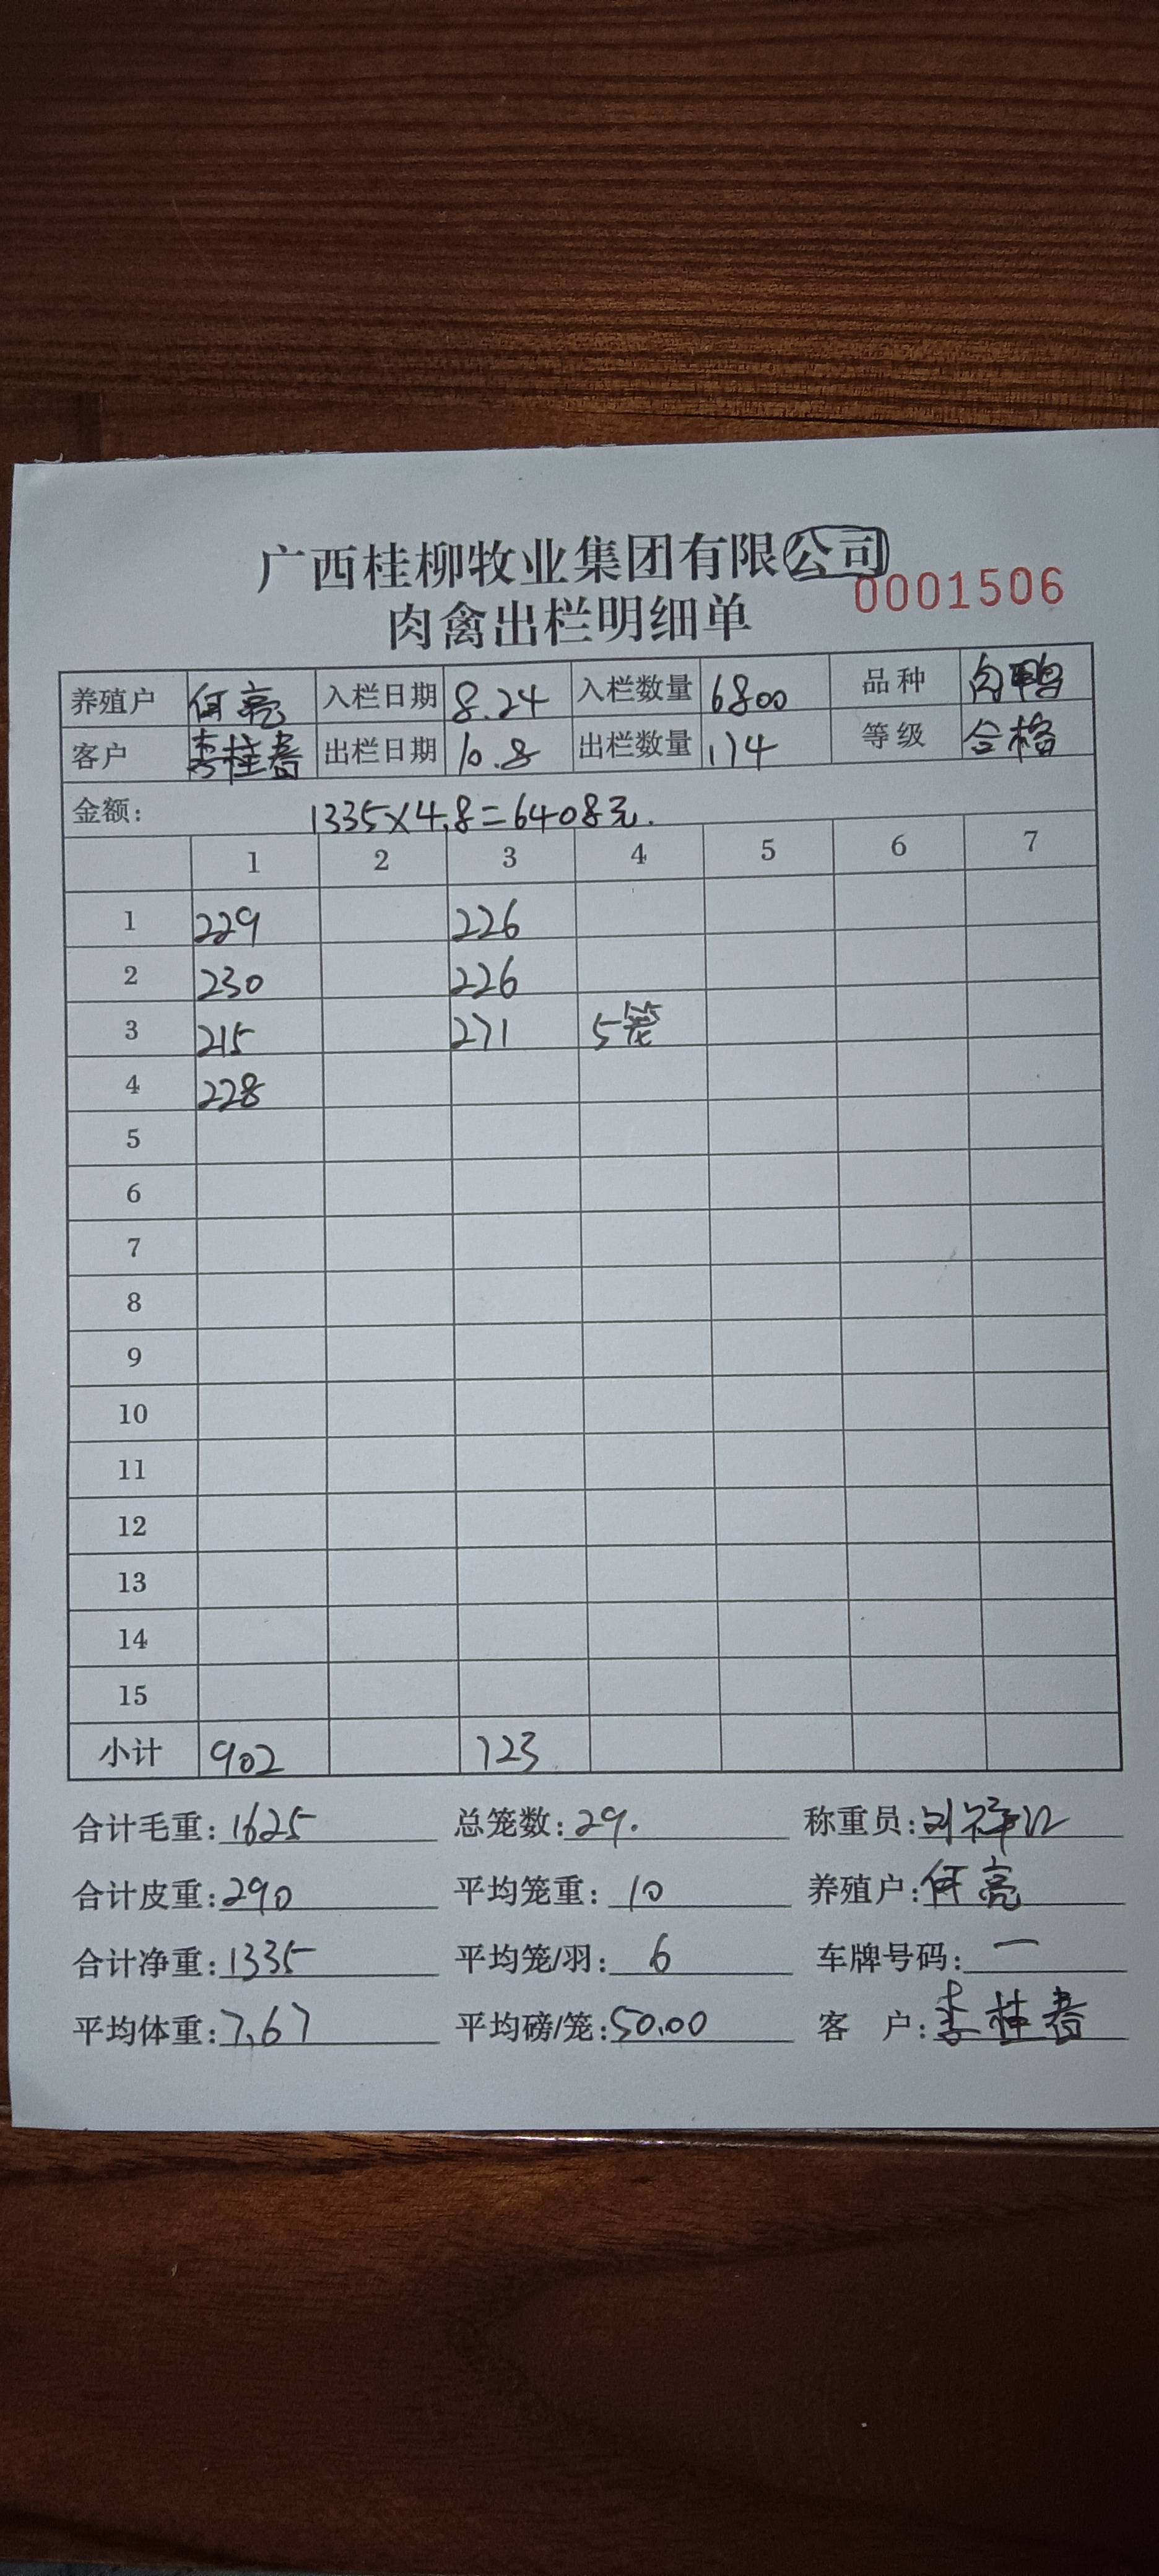 广西桂柳牧业集团有限公司
0001506
肉禽出栏明细单
养殖户 何亮 入栏日期 8.24 入栏数量 6800 品种 肉鸭
客户 李桂春 出栏日期 10.8 出栏数量 174 等级 合格
金额: 1335×4.8=6408元.
1 2 3 4 5 6 7
1 229 226
2 230 226
3 215 271 5笼
4 228
5
6
7
8
9
10
11
12
13
14
15
小计 902 723
合计毛重: 1625 总笼数: 29. 称重员:
合计皮重: 290 平均笼重: 10 养殖户: 何亮
合计净重: 1335 平均笼/羽: 6 车牌号码: 一
平均体重: 7.67 平均磅/笼: 50.00 客 户: 李桂春